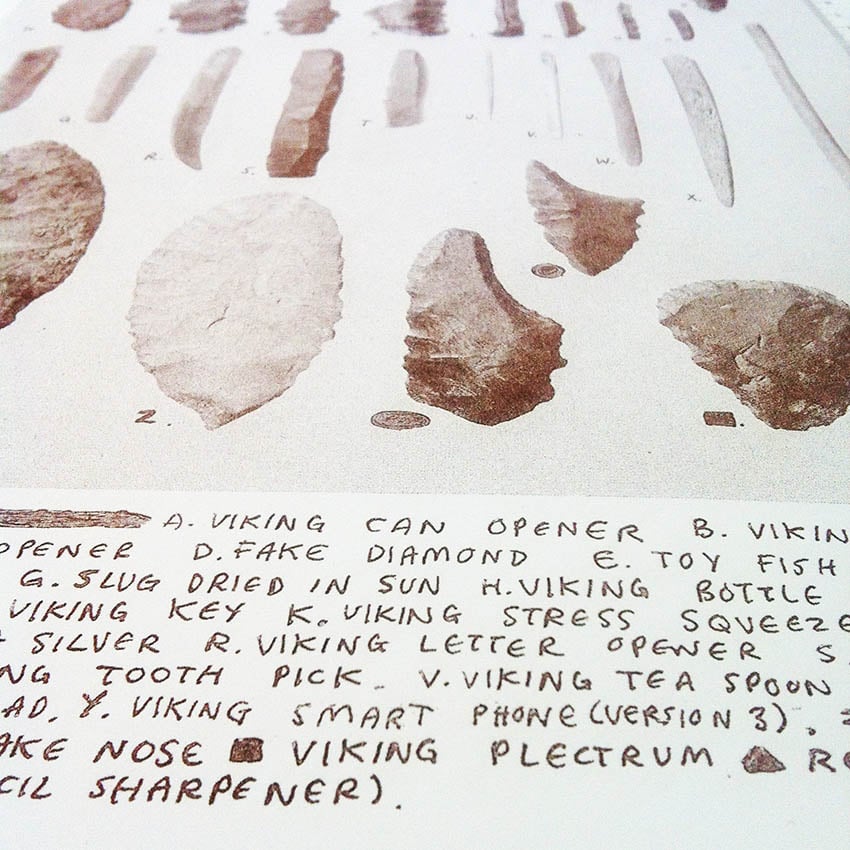 R. S. T. U. V. W. X.
Z.
A. VIKING CAN OPENER B.
OPENER D. FAKE DIAMOND E. TOY FISH
G. SLUG DRIED IN SUN H. VIKING BOTTLE
VIKING KEY K. VIKING STRESS
SILVER R. VIKING LETTER OPENER S.
TOOTH PICK. V. VIKING TEA SPOON
Y. VIKING SMART PHONE (VERSION 3).
NOSE VIKING PLECTRUM
SHARPENER).